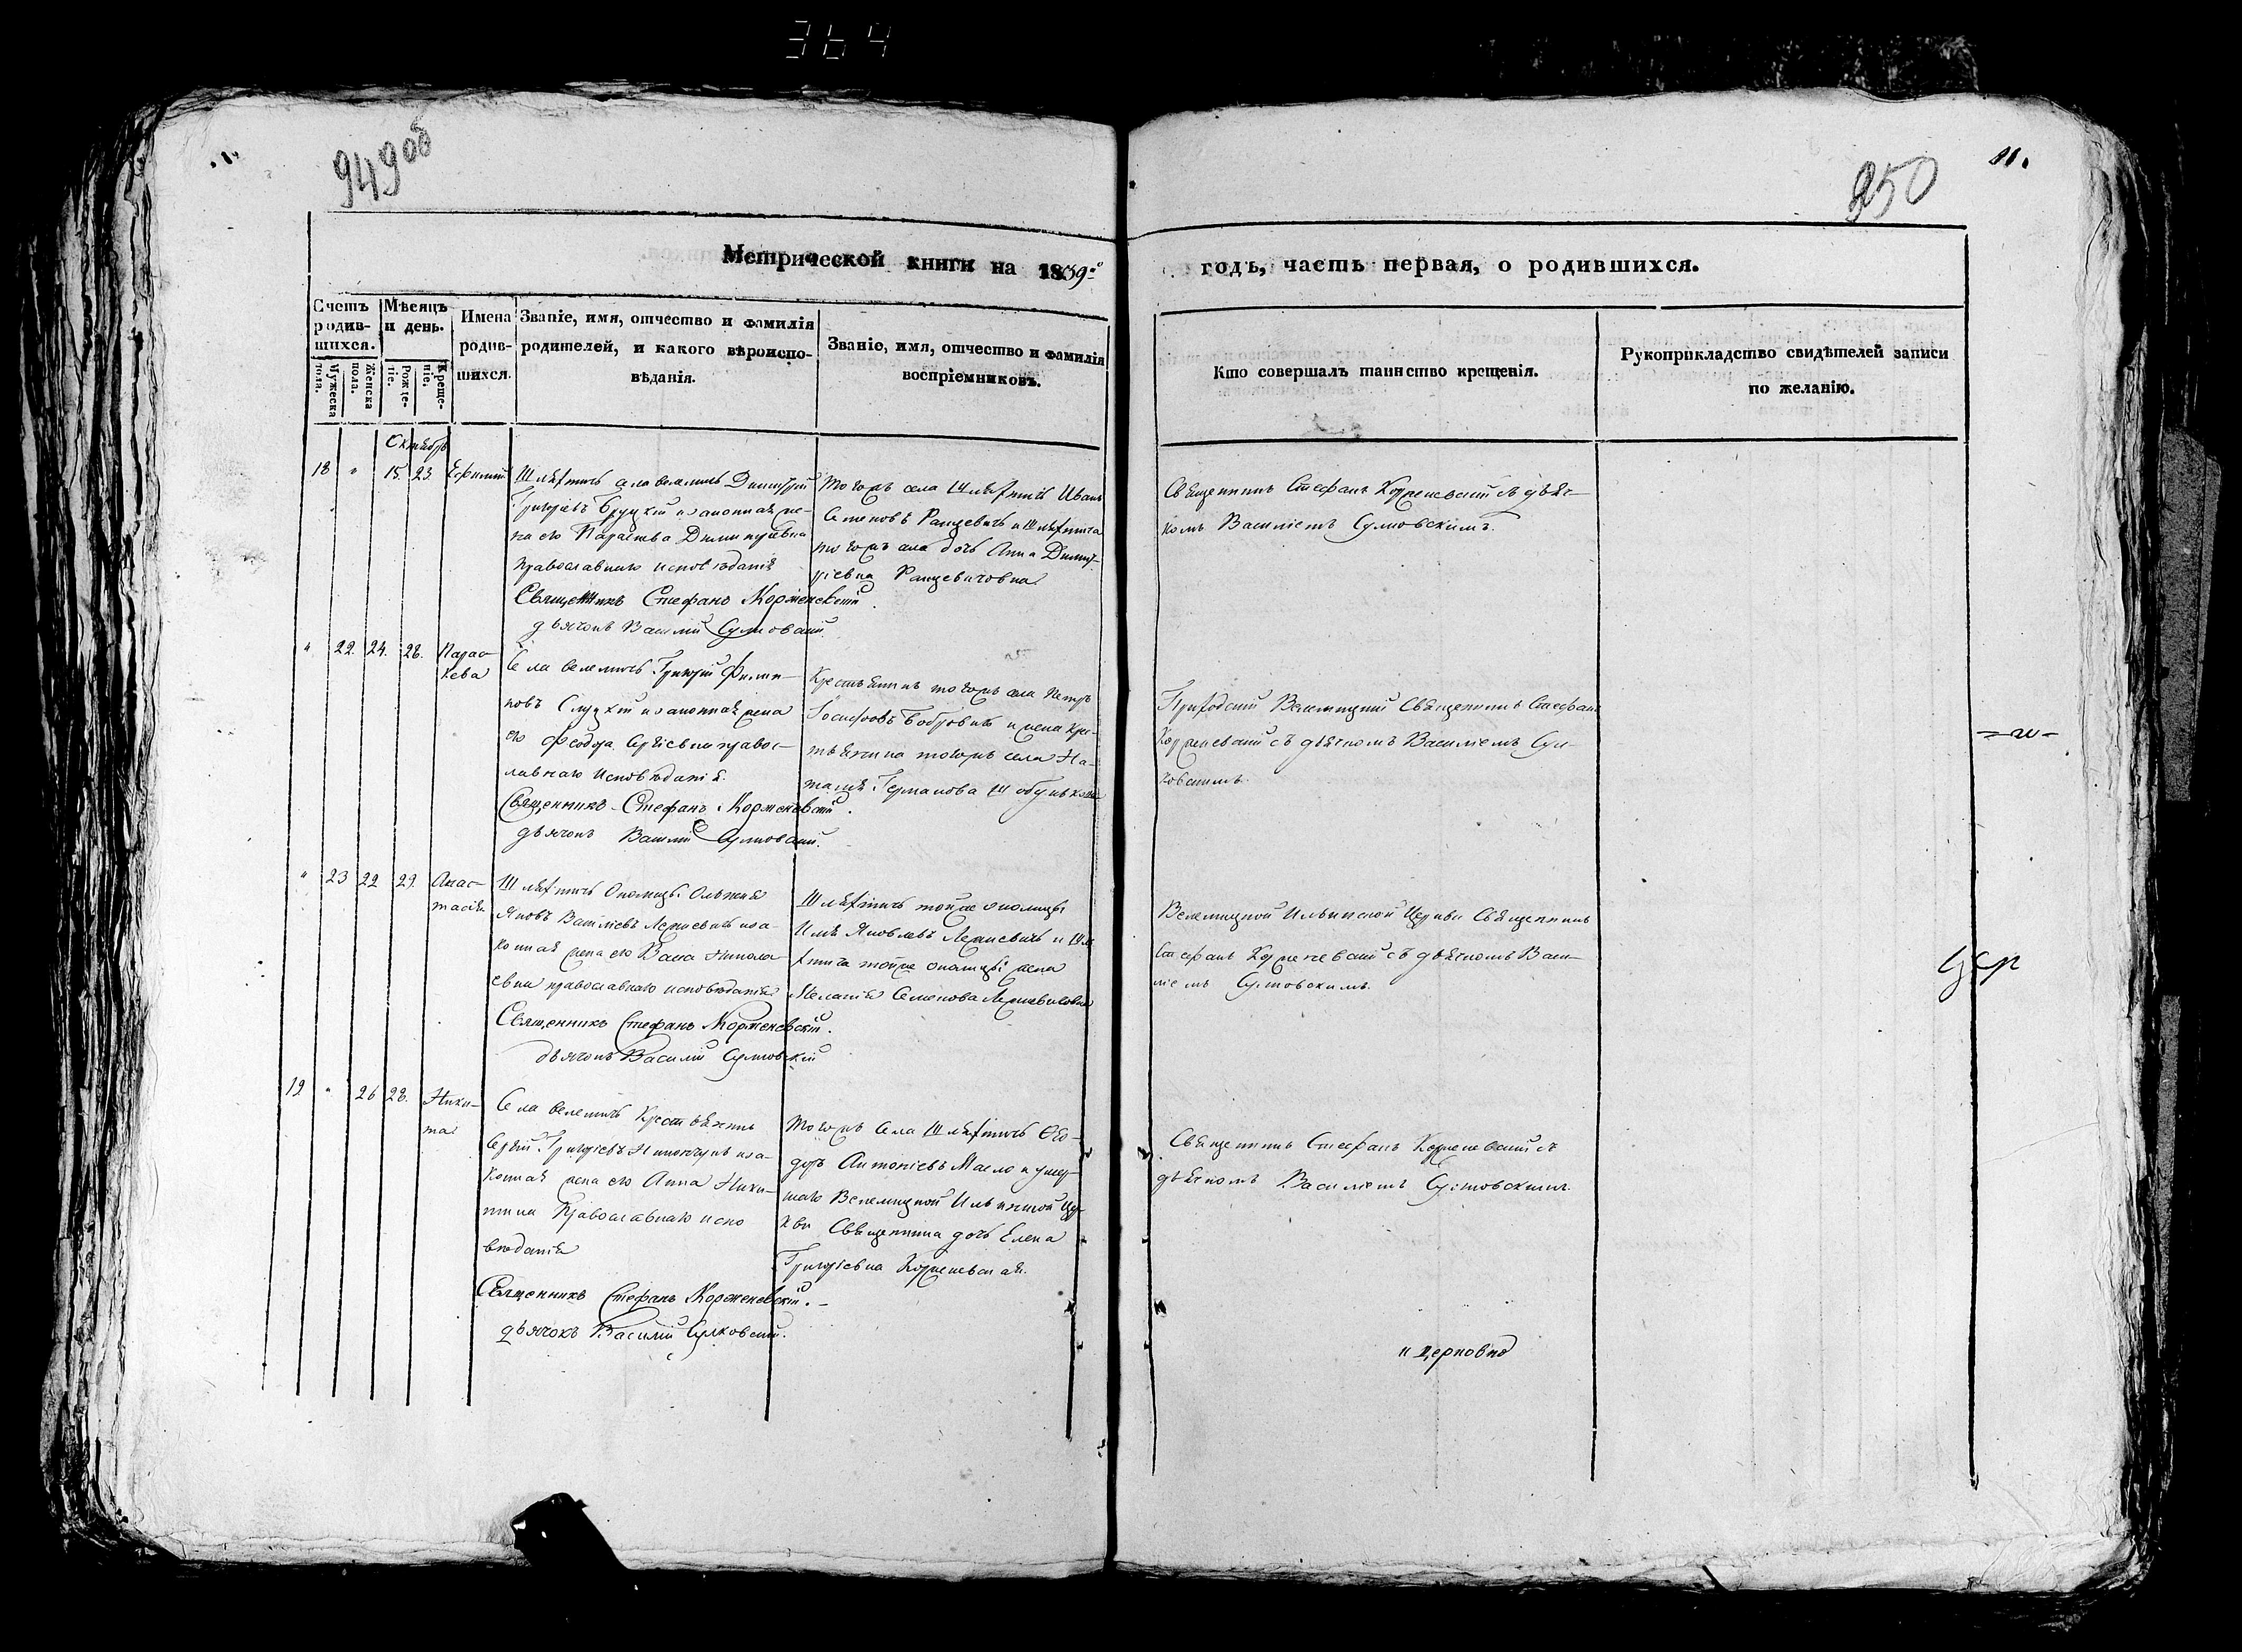 364
949 об
950
11.
Метрической книги на 1839:
годъ, часть первая, о родившихся.
Счетъ родив-
шихся.
Мужеска пола.
Женска пола.
Мѣсяцъ и день.
Рожде-
ніе.
Креще-
ніе.
Имена
родив-
шихся.
Званіе, имя, отчество и фамилія
родителей, и какого вѣроиспо-
вѣданія.
Званіе, имя, отчество и фамилія
воспріемниковъ.
Кто совершалъ таинство крещенія.
Рукоприкладство свидѣтелей записи
по желанію.
Октябрь
18 " 15. 23. Ефимій
Шляхтичъ села велемичъ Димитрій
Григоріевъ и законная же-
на его Параскева Димитріевна
православнаго исповѣданія
Священникъ Стефанъ Корженевскій.
дьячокъ Василій Сулковскій.
тогожъ села Шляхтичъ Иванъ
Семеновъ Ранцевичъ и Шляхтича
тогожъ села дочь Анна Димит-
ріевна Ранцевичовна
Священникъ Стефанъ Корженевскій съ дьяч-
комъ Василіемъ Сулковскимъ.
" 22. 24. 28. Парас-
кева
Села велемичъ Григорій Филип-
повъ Слуцкій и законная жена
его Феодора православ-
лавнаго Исповѣданія.
Священникъ Стефанъ Корженевскій.
дьячокъ Василій Сулковскій.
Крестьянинъ тогожъ села Петръ
Іосифовъ Бобровикъ и жена Крес-
тьянина тогожъ села На-
талія Германова
Приходскій Велемицкій Священникъ Стефанъ
Корженевскій съ дьячкомъ Василіемъ Сул-
ковскимъ.
" 23 22 29. Анас-
тасія
Шляхтичъ Околицы Ольжна
Яковъ Василіевъ и за-
конная жена его Васса Никола-
евна православнаго исповѣданія
Священникъ Стефанъ Корженевскій.
дьячокъ Василій Сулковскій
Шляхтичъ тойже околицы
Илія Яковлевъ и Шля-
хтича тойже околицы жена
Меланія Семенова
Велемицкой Ильинской Церкви Священникъ
Стефанъ Корженевскій съ дьячкомъ Васи-
ліемъ Сулковскимъ.
цер
19 " 26 28. Ники-
та
Села велемичъ Крестьянинъ
Сергій Григоріевъ и за-
конная жена его Анна Ники-
тина Православнаго испо
вѣданія
Священникъ Стефанъ Корженевскій.
дьячокъ Василій Сулковскій.
Тогожъ Села Шляхтичъ Ѳео-
доръ Антоніевъ Масло и умер-
шаго Велемицкой Ильинской Цер-
кви Священника дочь Елена
Григоріевна Корженевская.
Священникъ Стефанъ Корженевскій съ
дьячкомъ Василіемъ Сулковскимъ.
и церковно